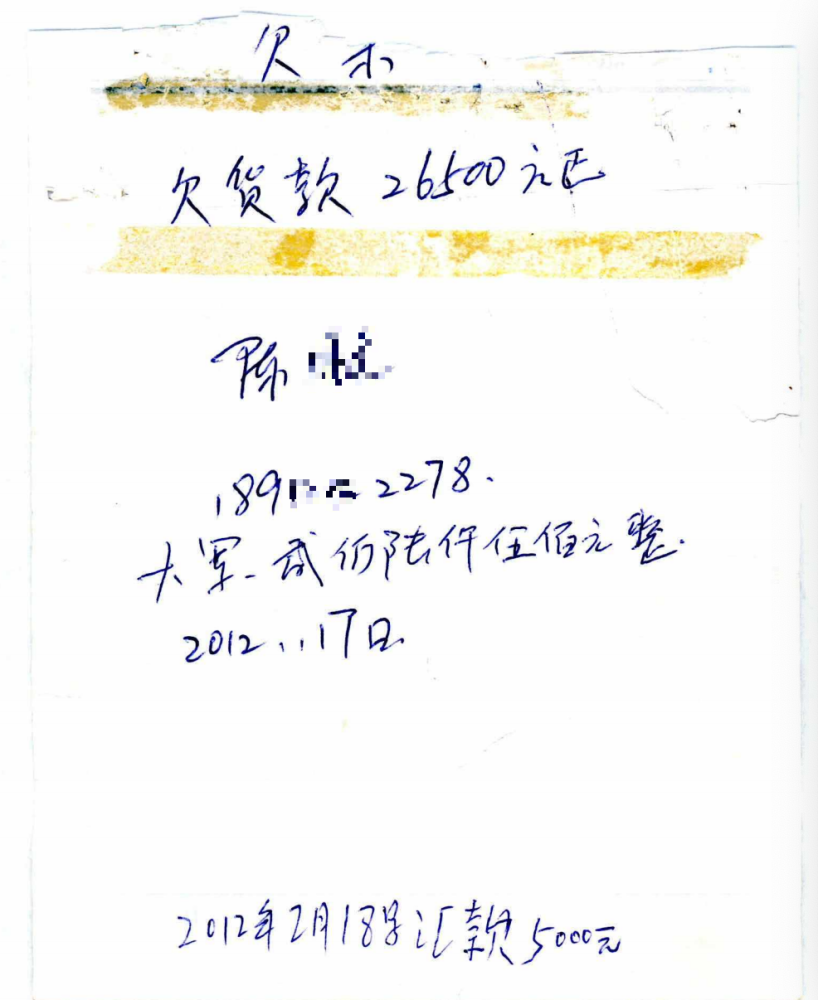 欠条
欠货款 26500元正
陈
189 2278.
大写 贰万陆仟伍佰元整.
2012.1.17日
2012年2月18号汇款5000元